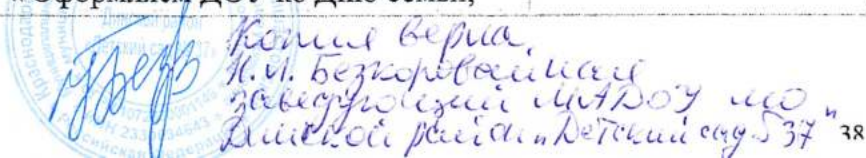 Оформляем ДОУ ко Дню семьи,
Копия верна.
Н.И. Безкоровайная
заведующий МАДОУ МО
Динской район "Детский сад №37" 38